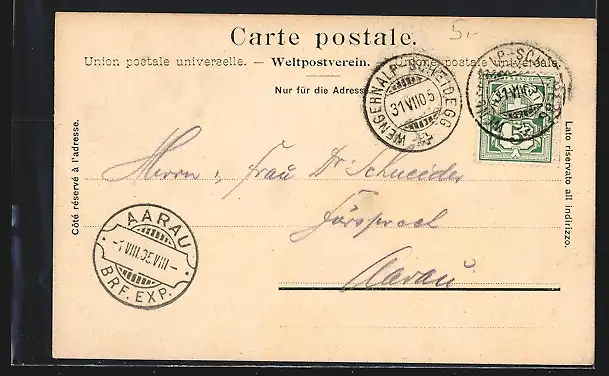 5.-
Carte postale.
Union postale universelle. — Weltpostverein. — Unione postale universale.
Nur für die Adresse.
WENGERNALP-SCHEIDEGG
31 VII 05
5
Côté réservé à l'adresse.
Lato riservato all indirizzo.
Herrn u. Frau Dr Schneider
Fürsprech
Aarau
AARAU
-1 VIII.05 VIII-
BRF. EXP.